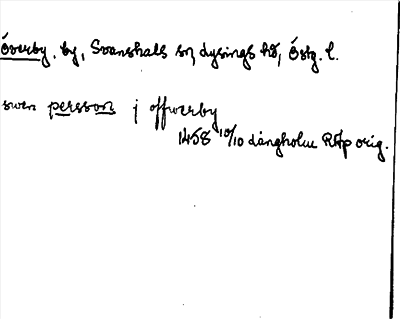 Överby, by, Svanshals sn, Lysings hd, Östg. l.
swen persson j offwerby
1458 10/10 Långholm RAp orig.